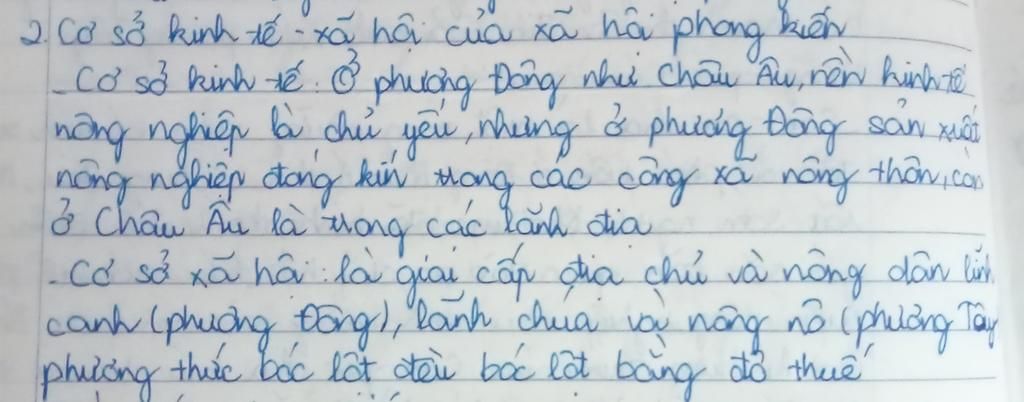 2. Cơ sở kinh tế - xã hội của xã hội phong kiến
- Cơ sở kinh tế: Ở phương Đông như Châu Âu, nền kinh tế
nông nghiệp là chủ yếu, nhưng ở phương Đông sản xuất
nông nghiệp đóng kín trong các công xã nông thôn, còn
ở Châu Âu là trong các lãnh địa
- Cơ sở xã hội: là giai cấp địa chủ và nông dân lĩnh
canh (phương Đông), lãnh chúa và nông nô (phương Tây
phương thức bóc lột đều bóc lột bằng đô thuế